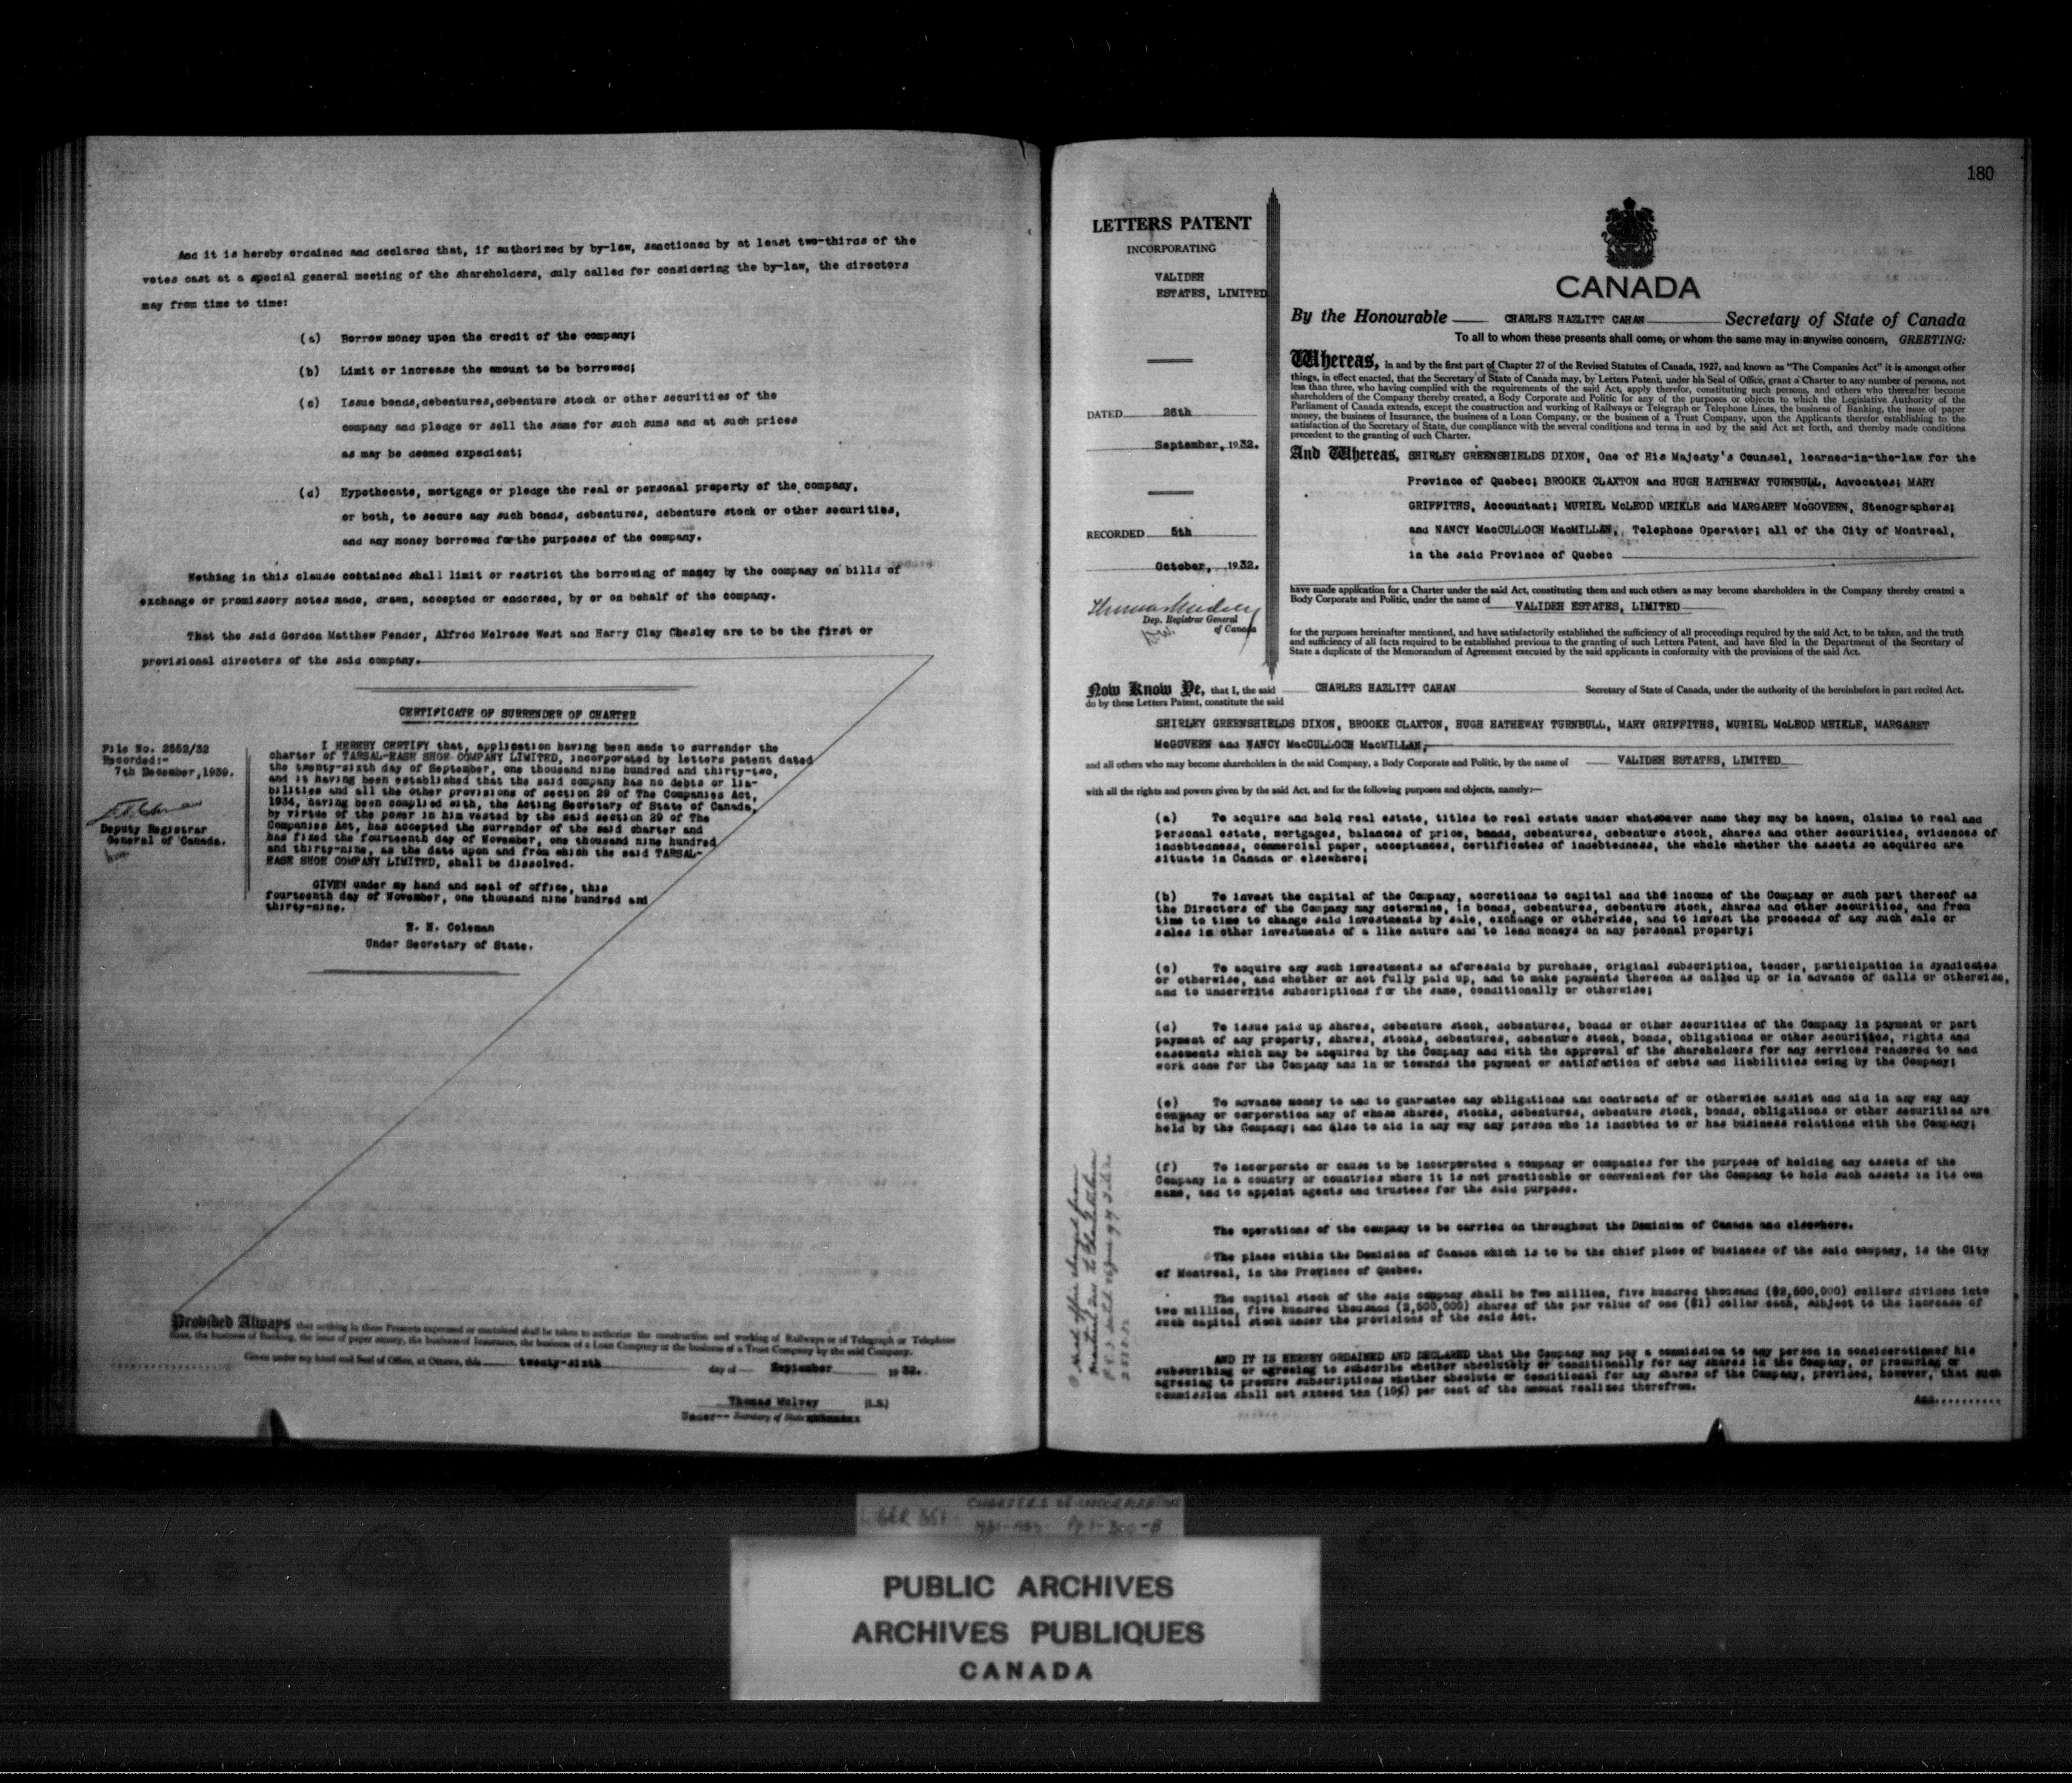 And it is hereby ordained and declared that, if authorized by by-law, sanctioned by at least two-thirds of the
votes cast at a special general meeting of the shareholders, duly called for considering the by-law, the directors
may from time to time:
(a) Borrow money upon the credit of the company;
(b) Limit or increase the amount to be borrowed;
(c) Issue bonds,debentures,debenture stock or other securities of the
company and pledge or sell the same for such sums and at such prices
as may be deemed expedient;
(d) Hypothecate, mortgage or pledge the real or personal property of the company,
or both, to secure any such bonds, debentures, debenture stock or other securities,
and any money borrowed for the purposes of the company.
Nothing in this clause contained shall limit or restrict the borrowing of money by the company on bills of
exchange or promissory notes made, drawn, accepted or endorsed, by or on behalf of the company.
That the said Gordon Matthew Pender, Alfred Melrose West and Harry Clay Chesley are to be the first or
provisional directors of the said company.
CERTIFICATE OF SURRENDER OF CHARTER
File No. 2552/32
Recorded:-
7th December,1939.
Deputy Registrar
General of Canada.
I HEREBY CERTIFY that, application having been made to surrender the
charter of TARSAL-EASE SHOE COMPANY LIMITED, incorporated by letters patent dated
the twenty-sixth day of September, one thousand nine hundred and thirty-two,
and it having been established that the said company has no debts or lia-
bilities and all the other provisions of section 29 of The Companies Act,
1934, having been complied with, the Acting Secretary of State of Canada,
by virtue of the power in him vested by the said section 29 of The
Companies Act, has accepted the surrender of the said charter and
has fixed the fourteenth day of November, one thousand nine hundred
and thirty-nine, as the date upon and from which the said TARSAL-
EASE SHOE COMPANY LIMITED, shall be dissolved.
GIVEN under my hand and seal of office, this
fourteenth day of November, one thousand nine hundred and
thirty-nine.
E. H. Coleman
Under Secretary of State.
Provided Always that nothing in these Presents expressed or contained shall be taken to authorize the construction and working of Railways or of Telegraph or Telephone
lines, the business of Banking, the issue of paper money, the business of Insurance, the business of a Loan Company or the business of a Trust Company by the said Company.
Given under my hand and Seal of Office, at Ottawa, this twenty-sixth day of September 1932.
Thomas Mulvey (L.S.)
Under-- Secretary of State
180
LETTERS PATENT
INCORPORATING
VALIDEH
ESTATES, LIMITED
DATED 26th
September, 1932.
RECORDED 5th
October, 1932.
Thomas Mulvey
Dep. Registrar General
of Canada
CANADA
By the Honourable CHARLES HAZLITT CAHAN Secretary of State of Canada
To all to whom these presents shall come, or whom the same may in anywise concern, GREETING:
Whereas, in and by the first part of Chapter 27 of the Revised Statutes of Canada, 1927, and known as "The Companies Act" it is amongst other
things, in effect enacted, that the Secretary of State of Canada may, by Letters Patent, under his Seal of Office, grant a Charter to any number of persons, not
less than three, who having complied with the requirements of the said Act, apply therefor, constituting such persons, and others who thereafter become
shareholders of the Company thereby created, a Body Corporate and Politic for any of the purposes or objects to which the Legislative Authority of the
Parliament of Canada extends, except the construction and working of Railways or Telegraph or Telephone Lines, the business of Banking, the issue of paper
money, the business of Insurance, the business of a Loan Company, or the business of a Trust Company, upon the Applicants therefor establishing to the
satisfaction of the Secretary of State, due compliance with the several conditions and terms in and by the said Act set forth, and thereby made conditions
precedent to the granting of such Charter.
And Whereas, SHIRLEY GREENSHIELDS DIXON, One of His Majesty's Counsel, learned-in-the-law for the
Province of Quebec; BROOKE CLAXTON and HUGH HATHEWAY TURNBULL, Advocates; MARY
GRIFFITHS, Accountant; MURIEL McLEOD MEIKLE and MARGARET McGOVERN, Stenographers;
and NANCY MacCULLOCH MacMILLAN, Telephone Operator; all of the City of Montreal,
in the said Province of Quebec
have made application for a Charter under the said Act, constituting them and such others as may become shareholders in the Company thereby created a
Body Corporate and Politic, under the name of VALIDEH ESTATES, LIMITED
for the purposes hereinafter mentioned, and have satisfactorily established the sufficiency of all proceedings required by the said Act, to be taken, and the truth
and sufficiency of all facts required to be established previous to the granting of such Letters Patent, and have filed in the Department of the Secretary of
State a duplicate of the Memorandum of Agreement executed by the said applicants in conformity with the provisions of the said Act.
Now Know Ye, that I, the said CHARLES HAZLITT CAHAN Secretary of State of Canada, under the authority of the hereinbefore in part recited Act,
do by these Letters Patent, constitute the said
SHIRLEY GREENSHIELDS DIXON, BROOKE CLAXTON, HUGH HATHEWAY TURNBULL, MARY GRIFFITHS, MURIEL McLEOD MEIKLE, MARGARET
McGOVERN and NANCY MacCULLOCH MacMILLAN,
and all others who may become shareholders in the said Company, a Body Corporate and Politic, by the name of VALIDEH ESTATES, LIMITED
with all the rights and powers given by the said Act, and for the following purposes and objects, namely:—
(a) To acquire and hold real estate, titles to real estate under whatsoever name they may be known, claims to real and
personal estate, mortgages, balances of price, bonds, debentures, debenture stock, shares and other securities, evidences of
indebtedness, commercial paper, acceptances, certificates of indebtedness, the whole whether the assets so acquired are
situate in Canada or elsewhere;
(b) To invest the capital of the Company, accretions to capital and the income of the Company or such part thereof as
the Directors of the Company may determine, in bonds, debentures, debenture stock, shares and other securities, and from
time to time to change said investments by sale, exchange or otherwise, and to invest the proceeds of any such sale or
sales in other investments of a like nature and to lend moneys on any personal property;
(c) To acquire any such investments as aforesaid by purchase, original subscription, tender, participation in syndicates
or otherwise, and whether or not fully paid up, and to make payments thereon as called up or in advance of calls or otherwise,
and to underwrite subscriptions for the same, conditionally or otherwise;
(d) To issue paid up shares, debenture stock, debentures, bonds or other securities of the Company in payment or part
payment of any property, shares, stocks, debentures, debenture stock, bonds, obligations or other securities, rights and
easements which may be acquired by the Company and with the approval of the shareholders for any services rendered to and
work done for the Company and in or towards the payment or satisfaction of debts and liabilities owing by the Company;
(e) To advance money to and to guarantee any obligations and contracts of or otherwise assist and aid in any way any
company or corporation any of whose shares, stocks, debentures, debenture stock, bonds, obligations or other securities are
held by the Company; and also to aid in any way any person who is indebted to or has business relations with the Company;
(f) To incorporate or cause to be incorporated a company or companies for the purpose of holding any assets of the
Company in a country or countries where it is not practicable or convenient for the Company to hold such assets in its own
name, and to appoint agents and trustees for the said purpose.
The operations of the company to be carried on throughout the Dominion of Canada and elsewhere.
The place within the Dominion of Canada which is to be the chief place of business of the said company, is the City
of Montreal, in the Province of Quebec.
The capital stock of the said company shall be Two million, five hundred thousand ($2,500,000) dollars divided into
two million, five hundred thousand (2,500,000) shares of the par value of one ($1) dollar each, subject to the increase of
such capital stock under the provisions of the said Act.
AND IT IS HEREBY ORDAINED AND DECLARED that the Company may pay a commission to any person in consideration of his
subscribing or agreeing to subscribe whether absolutely or conditionally for any shares in the Company, or procuring or
agreeing to procure subscriptions whether absolute or conditional for any shares of the Company, provided, however, that such
commission shall not exceed ten (10%) per cent of the amount realized therefrom.
And..........
Head office changed from
LIBER 351 CHARTERS OF INCORPORATION
1931-1933 Pp 1-300-B
PUBLIC ARCHIVES
ARCHIVES PUBLIQUES
CANADA